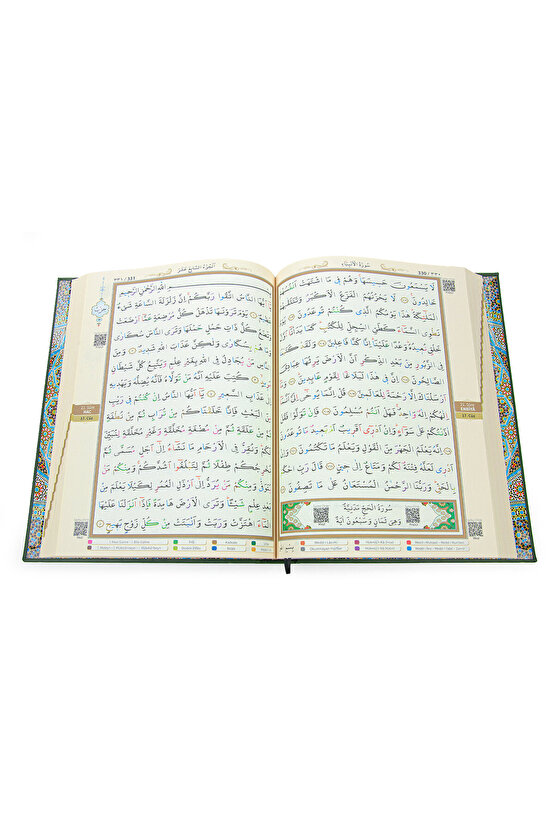 سُورَةُ الْاَنْبِيَاءِ
330 / ٣٣٠
لَا يَسْمَعُونَ حَسِيسَهَا وَهُمْ فِي مَا اشْتَهَتْ اَنْفُسُهُمْ
خَالِدُونَ لَا يَحْزُنُهُمُ الْفَزَعُ الْاَكْبَرُ وَتَتَلَقّٰيهُمُ
الْمَلٰٓئِكَةُ هٰذَا يَوْمُكُمُ الَّذِي كُنْتُمْ تُوعَدُونَ يَوْمَ
نَطْوِي السَّمَٓاءَ كَطَيِّ السِّجِلِّ لِلْكُتُبِ كَمَا بَدَأْنَٓا اَوَّلَ
خَلْقٍ نُعِيدُهُ وَعْدًا عَلَيْنَا اِنَّا كُنَّا فَاعِلِينَ وَلَقَدْ كَتَبْنَا
فِي الزَّبُورِ مِنْ بَعْدِ الذِّكْرِ اَنَّ الْاَرْضَ يَرِثُهَا عِبَادِيَ
الصَّالِحُونَ اِنَّ فِي هٰذَا لَبَلَاغًا لِقَوْمٍ عَابِدِينَ وَمَٓا
اَرْسَلْنَاكَ اِلَّا رَحْمَةً لِلْعَالَمِينَ قُلْ اِنَّمَا يُوحٰٓى اِلَيَّ اَنَّمَٓا
اِلٰهُكُمْ اِلٰهٌ وَاحِدٌ فَهَلْ اَنْتُمْ مُسْلِمُونَ فَاِنْ تَوَلَّوْا فَقُلْ
اٰذَنْتُكُمْ عَلٰى سَوَٓاءٍ وَاِنْ اَدْرِٓي اَقَرِيبٌ اَمْ بَعِيدٌ مَا تُوعَدُونَ
اِنَّهُ يَعْلَمُ الْجَهْرَ مِنَ الْقَوْلِ وَيَعْلَمُ مَا تَكْتُمُونَ وَاِنْ
اَدْرِي لَعَلَّهُ فِتْنَةٌ لَكُمْ وَمَتَاعٌ اِلٰى حِينٍ قَالَ رَبِّ احْكُمْ
بِالْحَقِّ وَرَبُّنَا الرَّحْمٰنُ الْمُسْتَعَانُ عَلٰى مَا تَصِفُونَ
سُورَةُ الْحَجِّ مَدَنِيَّةٌ
وَهِيَ ثَمَانٍ وَسَبْعُونَ اٰيَةً
ENBİYÂ
17. Cüz
اَلْجُزْءُ السَّابِعَ عَشَرَ
٣٣١ / 331
بِسْمِ اللّٰهِ الرَّحْمٰنِ الرَّحِيمِ
يَٓا اَيُّهَا النَّاسُ اتَّقُوا رَبَّكُمْ اِنَّ زَلْزَلَةَ السَّاعَةِ شَيْءٌ
عَظِيمٌ يَوْمَ تَرَوْنَهَا تَذْهَلُ كُلُّ مُرْضِعَةٍ عَمَّٓا اَرْضَعَتْ
وَتَضَعُ كُلُّ ذَاتِ حَمْلٍ حَمْلَهَا وَتَرَى النَّاسَ سُكَارٰى
وَمَا هُمْ بِسُكَارٰى وَلٰكِنَّ عَذَابَ اللّٰهِ شَدِيدٌ وَمِنَ
النَّاسِ مَنْ يُجَادِلُ فِي اللّٰهِ بِغَيْرِ عِلْمٍ وَيَتَّبِعُ كُلَّ شَيْطَانٍ
مَرِيدٍ كُتِبَ عَلَيْهِ اَنَّهُ مَنْ تَوَلَّاهُ فَاَنَّهُ يُضِلُّهُ وَيَهْدِيهِ
اِلٰى عَذَابِ السَّعِيرِ يَٓا اَيُّهَا النَّاسُ اِنْ كُنْتُمْ فِي رَيْبٍ
مِنَ الْبَعْثِ فَاِنَّا خَلَقْنَاكُمْ مِنْ تُرَابٍ ثُمَّ مِنْ نُطْفَةٍ
ثُمَّ مِنْ عَلَقَةٍ ثُمَّ مِنْ مُضْغَةٍ مُخَلَّقَةٍ وَغَيْرِ مُخَلَّقَةٍ لِنُبَيِّنَ
لَكُمْ وَنُقِرُّ فِي الْاَرْحَامِ مَا نَشَٓاءُ اِلٰٓى اَجَلٍ مُسَمًّى ثُمَّ
نُخْرِجُكُمْ طِفْلًا ثُمَّ لِتَبْلُغُٓوا اَشُدَّكُمْ وَمِنْكُمْ مَنْ
يُتَوَفّٰى وَمِنْكُمْ مَنْ يُرَدُّ اِلٰٓى اَرْذَلِ الْعُمُرِ لِكَيْلَا يَعْلَمَ مِنْ
بَعْدِ عِلْمٍ شَيْـًٔا وَتَرَى الْاَرْضَ هَامِدَةً فَاِذَٓا اَنْزَلْنَا عَلَيْهَا
الْمَٓاءَ اهْتَزَّتْ وَرَبَتْ وَاَنْبَتَتْ مِنْ كُلِّ زَوْجٍ بَهِيجٍ
HAC
17. Cüz